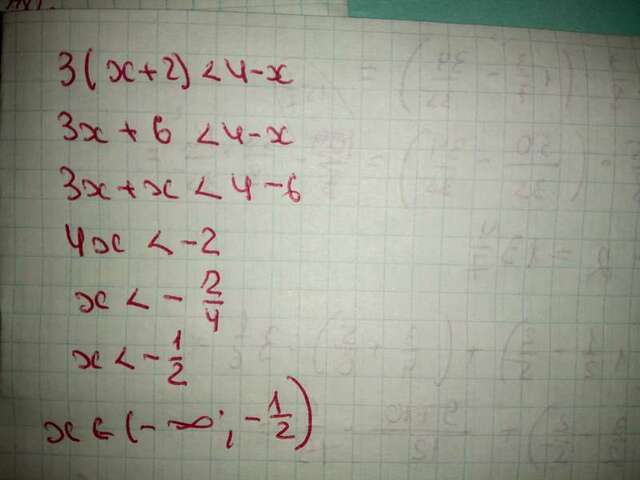 3(x+2)<4-x
3x+6<4-x
3x+x<4-6
4x<-2
x<-2/4
x<-1/2
x∈(-∞;-1/2)